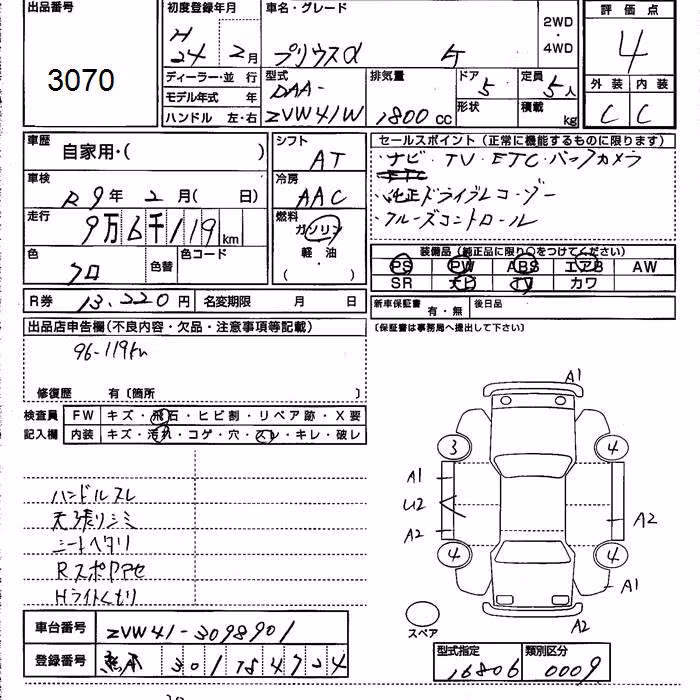 出品番号
3070
初度登録年月
H 24 2月
車名・グレード
プリウスα
2WD
・
4WD
評価点
4
外装 内装
C C
ディーラー・並 行
モデル年式 年
ハンドル 左・右
型式
DAA-
ZVW41W
排気量
1800 cc
ドア
5
形状
定員
5人
積載
kg
車歴
自家用・( )
車検
R 9年 2月( 日)
走行
9万6千119km
色
クロ
色替
色コード
シフト
AT
冷房
AAC
燃料
ガソリン
軽・油
( ・ )
セールスポイント(正常に機能するものに限ります)
・ナビ・TV・ETC・バックカメラ
・純正ドライブレコーダー
・クルーズコントロール
装備品(純正品に限り○をつけてください)
PS PW ABS エアB AW
SR ナビ TV カワ
R券 13,220円
名変期限 月 日
新車保証書 有・無
後日品
(保証書は事務局へ提出して下さい)
出品店申告欄(不良内容・欠品・注意事項等記載)
96-119km
修復歴 有〔箇所 〕
検査員 FW キズ・飛石・ヒビ割・リペア跡・X要
記入欄 内装 キズ・汚れ・コゲ・穴・スレ・キレ・破レ
ハンドルスレ
天張りシミ
シートヘタリ
Rスポアセ
Hライトくもり
A1
3 4
A1
U2
A2
A2
4 4
A1
A2
スペア
車台番号 ZVW41-3098901
登録番号 熊本 301 78 4724
型式指定 類別区分
16806 0009